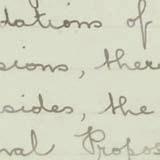 dations of
sions, there
sides, the
nal Propos